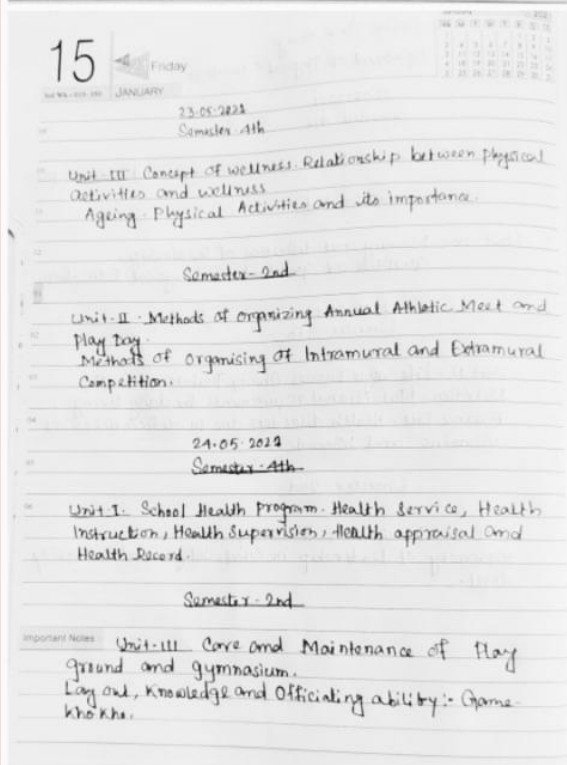 15
Friday
JANUARY
Semester 4th
Unit-III Concept of wellness. Relationship between physical
activities and wellness
Ageing. Physical Activities and its importance.
Semester-2nd
Unit-II. Methods of organizing Annual Athletic Meet and
Play Day.
Methods of organising of Intramural and Extramural
Competition.
Semester-4th
Unit-I. School Health Program. Health Service, Health
Instruction, Health Supervision, Health appraisal and
Health Record.
Semester-2nd
Important Notes
Unit-III Care and Maintenance of Play
ground and gymnasium.
Lay out, Knowledge and Officiating ability:- Game-
Kho Kho.